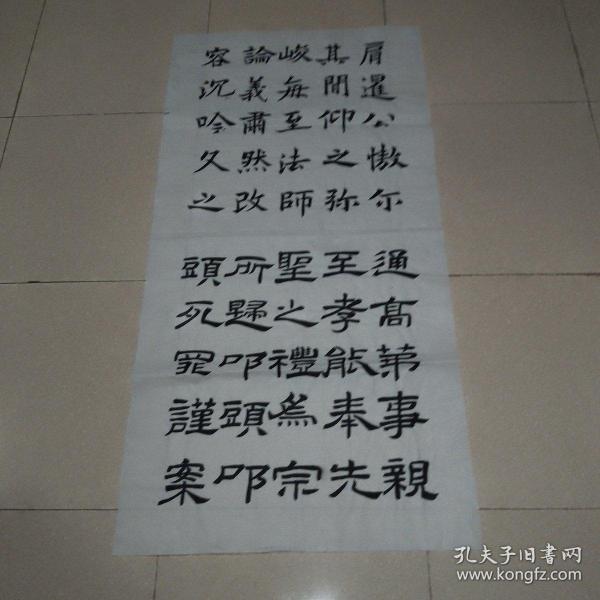 肩暹公傲尔
其間仰之弥
峻每至法師
論義肅然改
容沉吟久之
通高第事親
至孝能奉先
聖之禮為宗
所歸叩頭叩
頭死罪謹案
孔夫子旧書网
www.kongfz.com